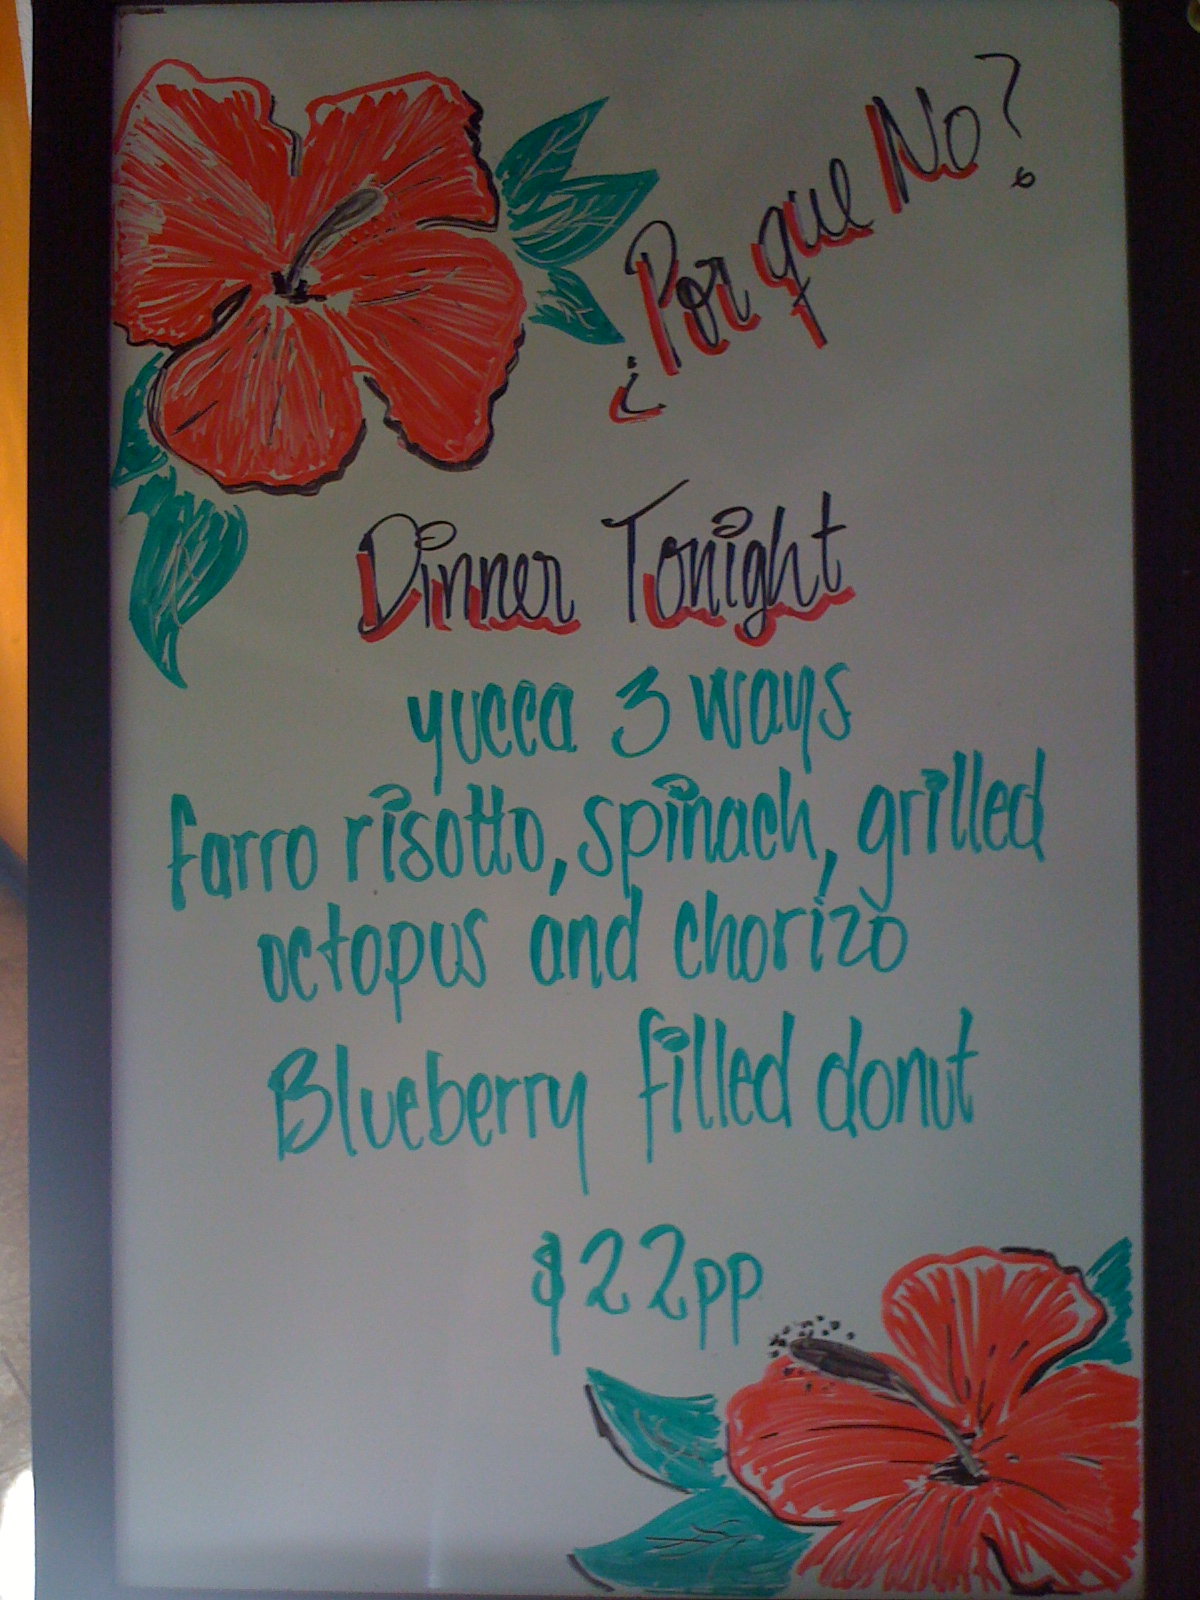 ¿Por que No?
Dinner Tonight
yucca 3 ways
farro risotto, spinach, grilled
octopus and chorizo
Blueberry filled donut
$22pp